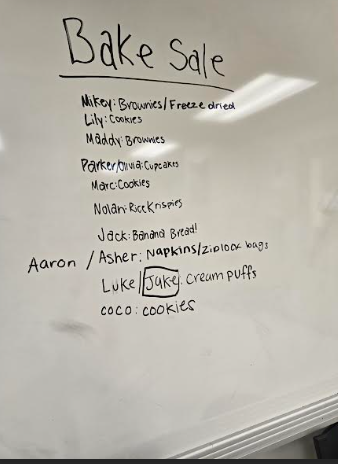 Bake Sale
Mikey: Brownies/Freeze dried
Lily: Cookies
Maddy: Brownies
Parker/Olivia: Cupcakes
Marc: Cookies
Nolan: Rice Krispies
Jack: Banana Bread!
Aaron / Asher: Napkins/ziplock bags
Luke/Jake: Cream puffs
Coco: cookies